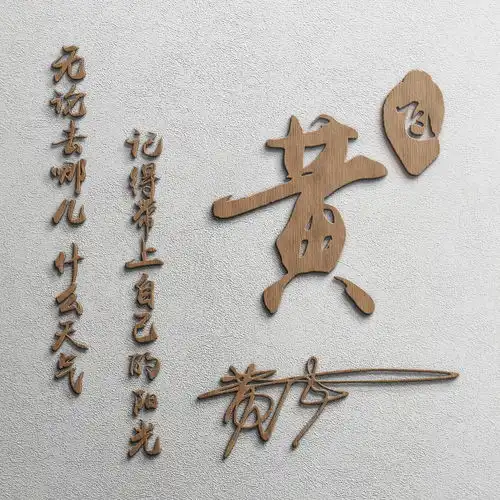 无论去哪儿 什么天气
记得带上自己的阳光
黄
飞